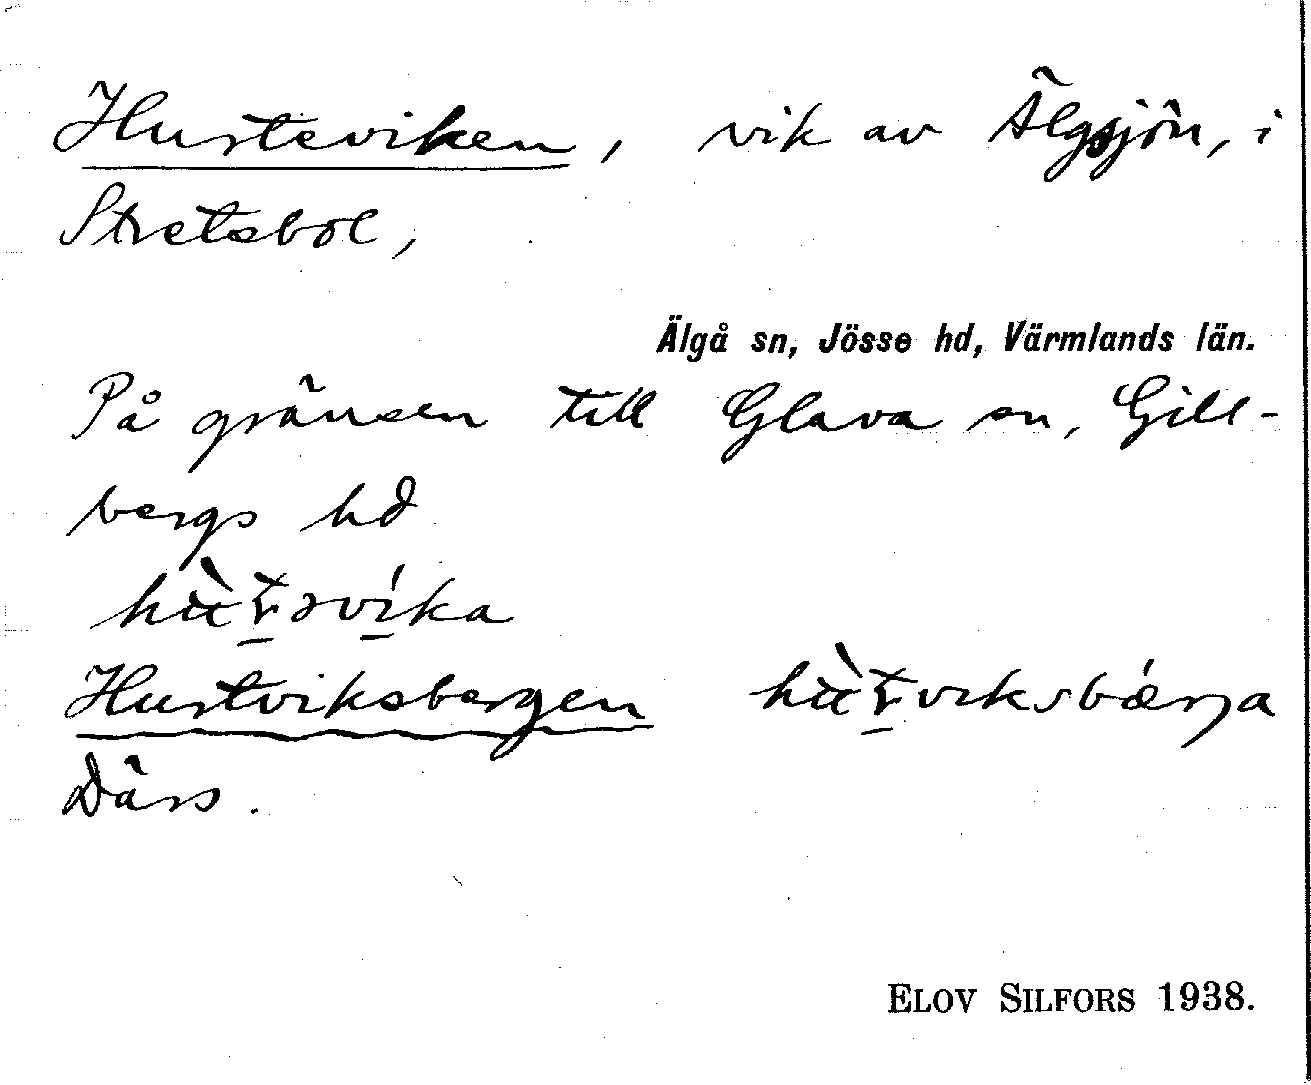 Hursteviken, vik av Älgsjön, i
Stretsbol,
Älgå sn, Jösse hd, Värmlands län.
På gränsen till Glava sn, Gill-
bergs hd
Hurstviksbergen
Därs.
ELOV SILFORS 1938.